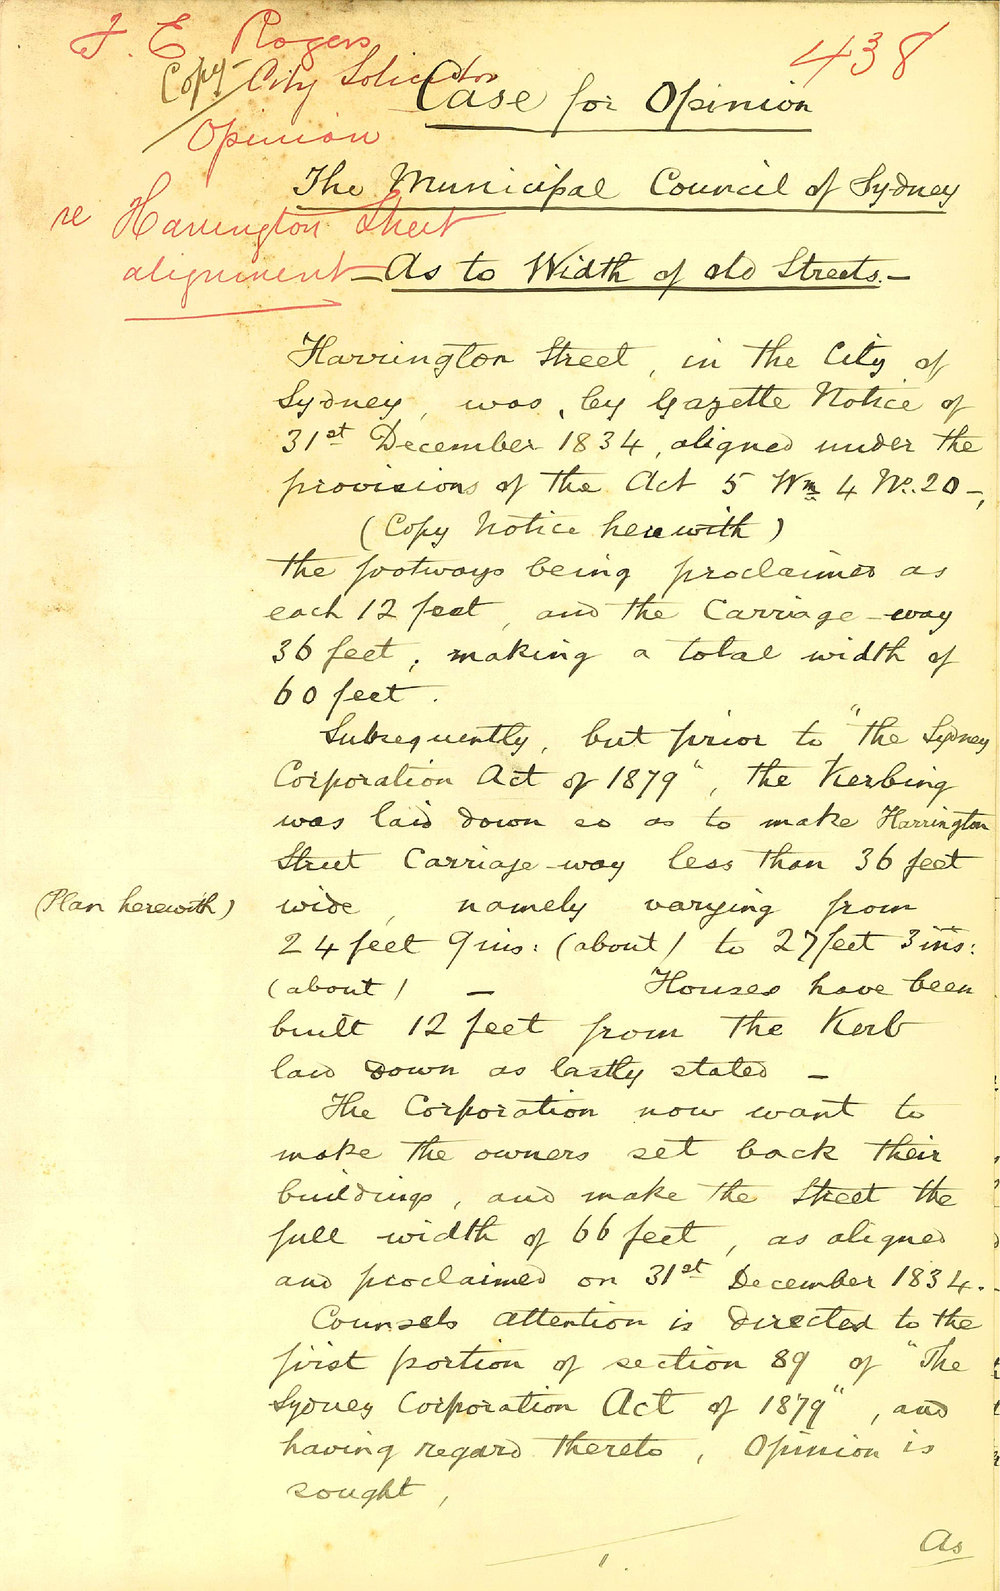 F. E. Rogers
438
Copy City Solicitor
Case for Opinion
Opinion
The Municipal Council of Sydney
re Harrington Street
alignment — As to Width of old Streets. —
Harrington Street, in the City of
Sydney, was, by Gazette Notice of
31st December 1834, aligned under the
provisions of the Act 5 Wm 4 No. 20 —,
(Copy Notice herewith)
the footways being proclaimed as
each 12 feet, and the Carriage-way
36 feet, making a total width of
60 feet.
Subsequently, but prior to "the Sydney
Corporation Act of 1879", the Kerbing
was laid down so as to make Harrington
Street Carriage-way less than 36 feet
(Plan herewith) wide, namely varying from
24 feet 9 ins: (about) to 27 feet 3 ins:
(about) — Houses have been
built 12 feet from the Kerb
laid down as lastly stated —
The Corporation now want to
make the owners set back their
buildings, and make the Street the
full width of 66 feet, as aligned
and proclaimed on 31st December 1834. -
Counsels attention is directed to the
first portion of section 89 of "The
Sydney Corporation Act of 1879", and
having regard thereto, Opinion is
sought,
1.
As